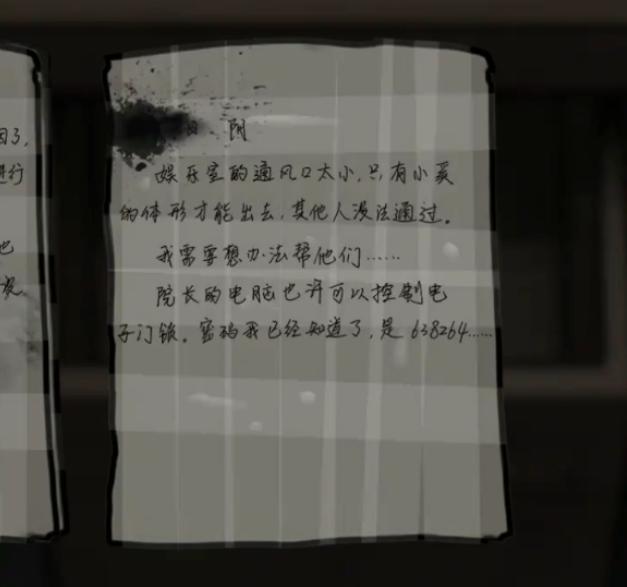 因了,
进行
也
说
日 阴
娱乐室的通风口太小,只有小奚
的体形才能出去,其他人没法通过。
我需要想办法帮他们……
院长的电脑也许可以控制电
子门锁。密码我已经知道了,是 638264……